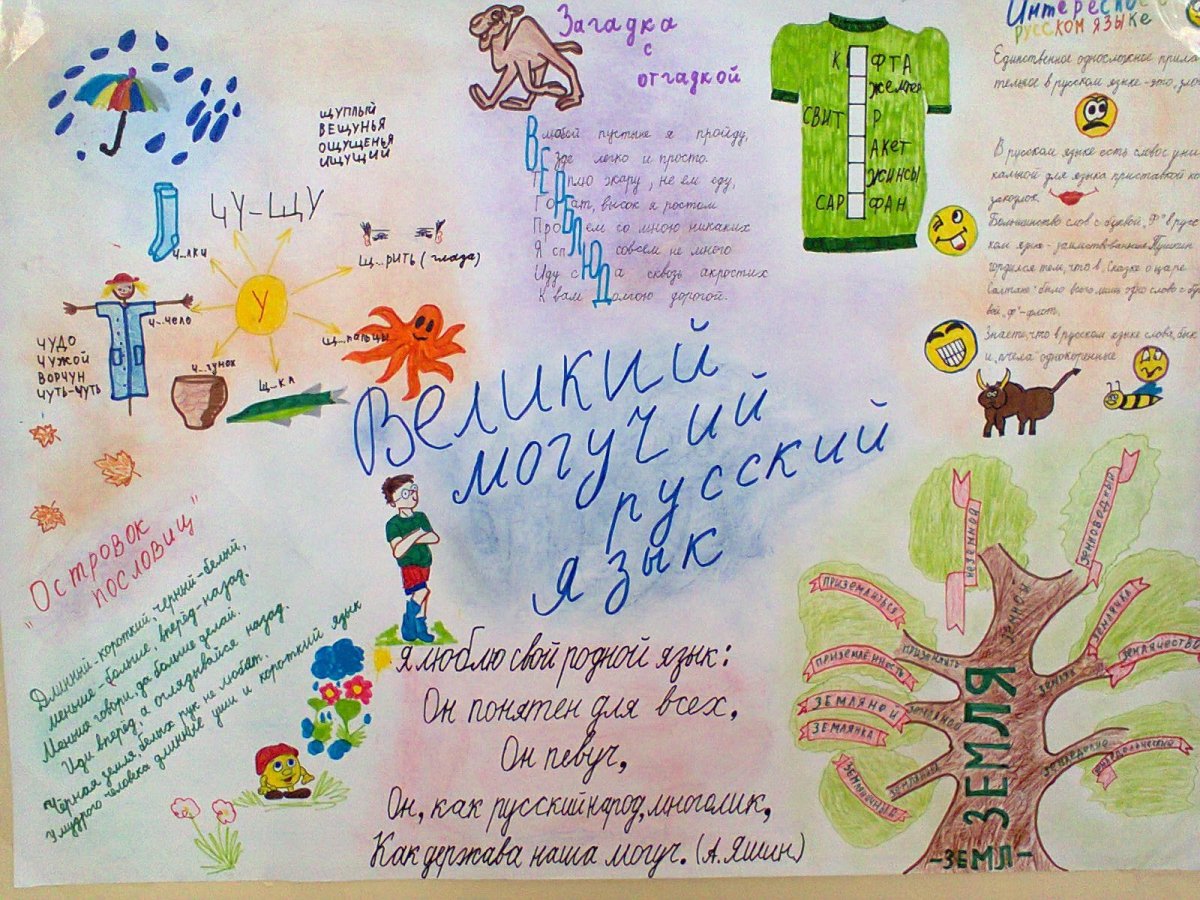 ЩУПЛЫЙ
ВЕЩУНЬЯ
ОЩУЩЕНЬЯ
ИЩУЩИЙ
ЧУ-ЩУ
Ч...ЛКИ
Щ...РИТЬ (глаза)
У
Ч...чело
Щ...пальцы
Ч...гунок
Щ...КА
ЧУДО
ЧУЖОЙ
ВОРЧУН
ЧУТЬ-ЧУТЬ
Загадка
с
отгадкой
В любой пустыне я пройду,
Везде легко и просто.
Терплю жару, не ем еду,
Горбат, высок я ростом
Проблем со мною никаких
Я сплю совсем не много
Иду сюда сквозь акростих
К вам Долгою дорогой.
К ФТА
Жемпер
СВИТ Р
АКЕТ
ЖИНСЫ
САР ФАН
Интересное о
русском языке
Единственное односложное прила-
тельное в русском языке - это, зло
В русском языке есть слово с уни-
кальной для языка приставкой ко
закоулок.
Большинство слов с буквой "Ф" в русс-
ком язык - заимствованные. Пушкин
гордился тем, что в "Сказке о царе
Салтане" было всего лишь одно слово с бук
вой "ф" - флот.
Знаете, что в русском языке слова "бык
и "пчела" однокоренные
Великий
могучий
русский
язык
"Островок
пословиц"
Длинный-короткий, черный-белый,
меньше-больше, вперёд-назад.
Меньше говори, да больше делай.
Иди вперёд, а оглядывайся назад.
Чёрная земля белых рук не любит.
У мудрого человека длинные уши и короткий язык
Я люблю свой родной язык:
Он понятен для всех,
Он певуч,
Он, как русский народ, многолик,
Как держава наша могуч. (А. Яшин)
НЕЗЕМНОЙ
ЗЕМНОВОДНЫЙ
ЗЕМНОЙ
ПРИЗЕМЛИТЬСЯ
ПРИЗЕМЛЁННОСТЬ
ПРИЗЕМЛИТЬ
ЗЕМЛЯЧКА
ЗЕМЛЯЧЕСТВО
ЗЕМЛЯК
ЗЕМЛЯНОЙ
ЗЕМЛЯНКА
ЗЕМЛЕДЕЛИЕ
ЗЕМЛЕДЕЛЬЧЕСКИЙ
ЗЕМЛЯ
-ЗЕМЛ-